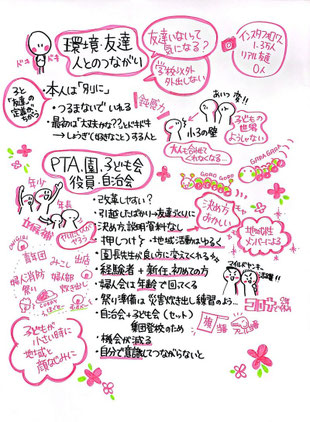 環境・友達
人とのつながり
友達いないって
気になる?
学校以外
外出しない
インスタフォロワー
1.3万人
リアル友達
0人
ドキ
ドキ
子と
「友達」の
定義が
ちがう
・本人は「別に」
・つるまないでいれる
・最初は「大丈夫かな??」とドキドキ
→しょうぎ(好きなこと)すると
鈍感力
あいつ変!!
小3の壁
子どもの
世界
ようしゃない
大人も会話で
くれなくなる…
PTA、園、子ども会
役員・自治会
・改革しやすい?
・引越したばかり→友達づくりに
・決め方、説明資料なし
・押しつけ
・地域活動はゆるく
・園長先生が良い方に変えてくれるか
・経験者+新任、初めての方
・婦人会は年齢で回ってくる
・祭り準備は災害炊き出し練習のよう…
・自治会+子ども会(セット)
集団登校のため
・機会が減る
・自分で意識してつながらないと
年少
年長
GARA GARA
GARA GARA
GARA GARA
決め方
おかしい
地域性
メンバーによる
マイルドヤンキー
婦人消防
婦人部
祭り
みこし
出店
炊き出し
子どもが
小さい時に
地域と
顔なじみに